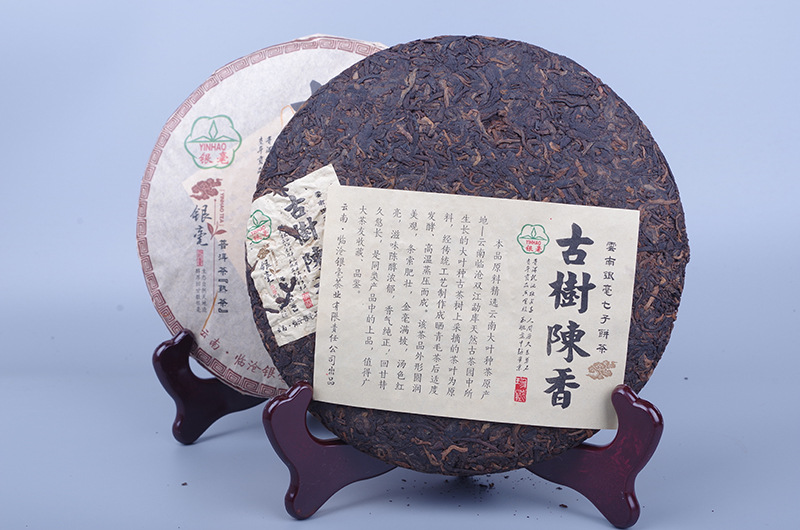 YINHAO
银毫
银毫
YINHAO TEA
普洱茶『熟茶』
云南·临沧银
古樹陳香
雲南銀毫七子餅茶
古樹陳香
本品原料精选云南大叶种茶原产
地—云南临沧双江勐库天然古茶园中所
生长的大叶种古茶树上采摘的茶叶为原
料,经传统工艺制作成晒青毛茶后适度
发酵,高温蒸压而成。该茶品外形圆润
美观,条索肥壮,金毫满披,汤色红
亮,滋味陈醇浓郁,香气纯正,回甘持
久悠长,是同类产品中的上品,值得广
大茶友收藏、品鉴。
云南·临沧银毫茶业有限责任公司出品